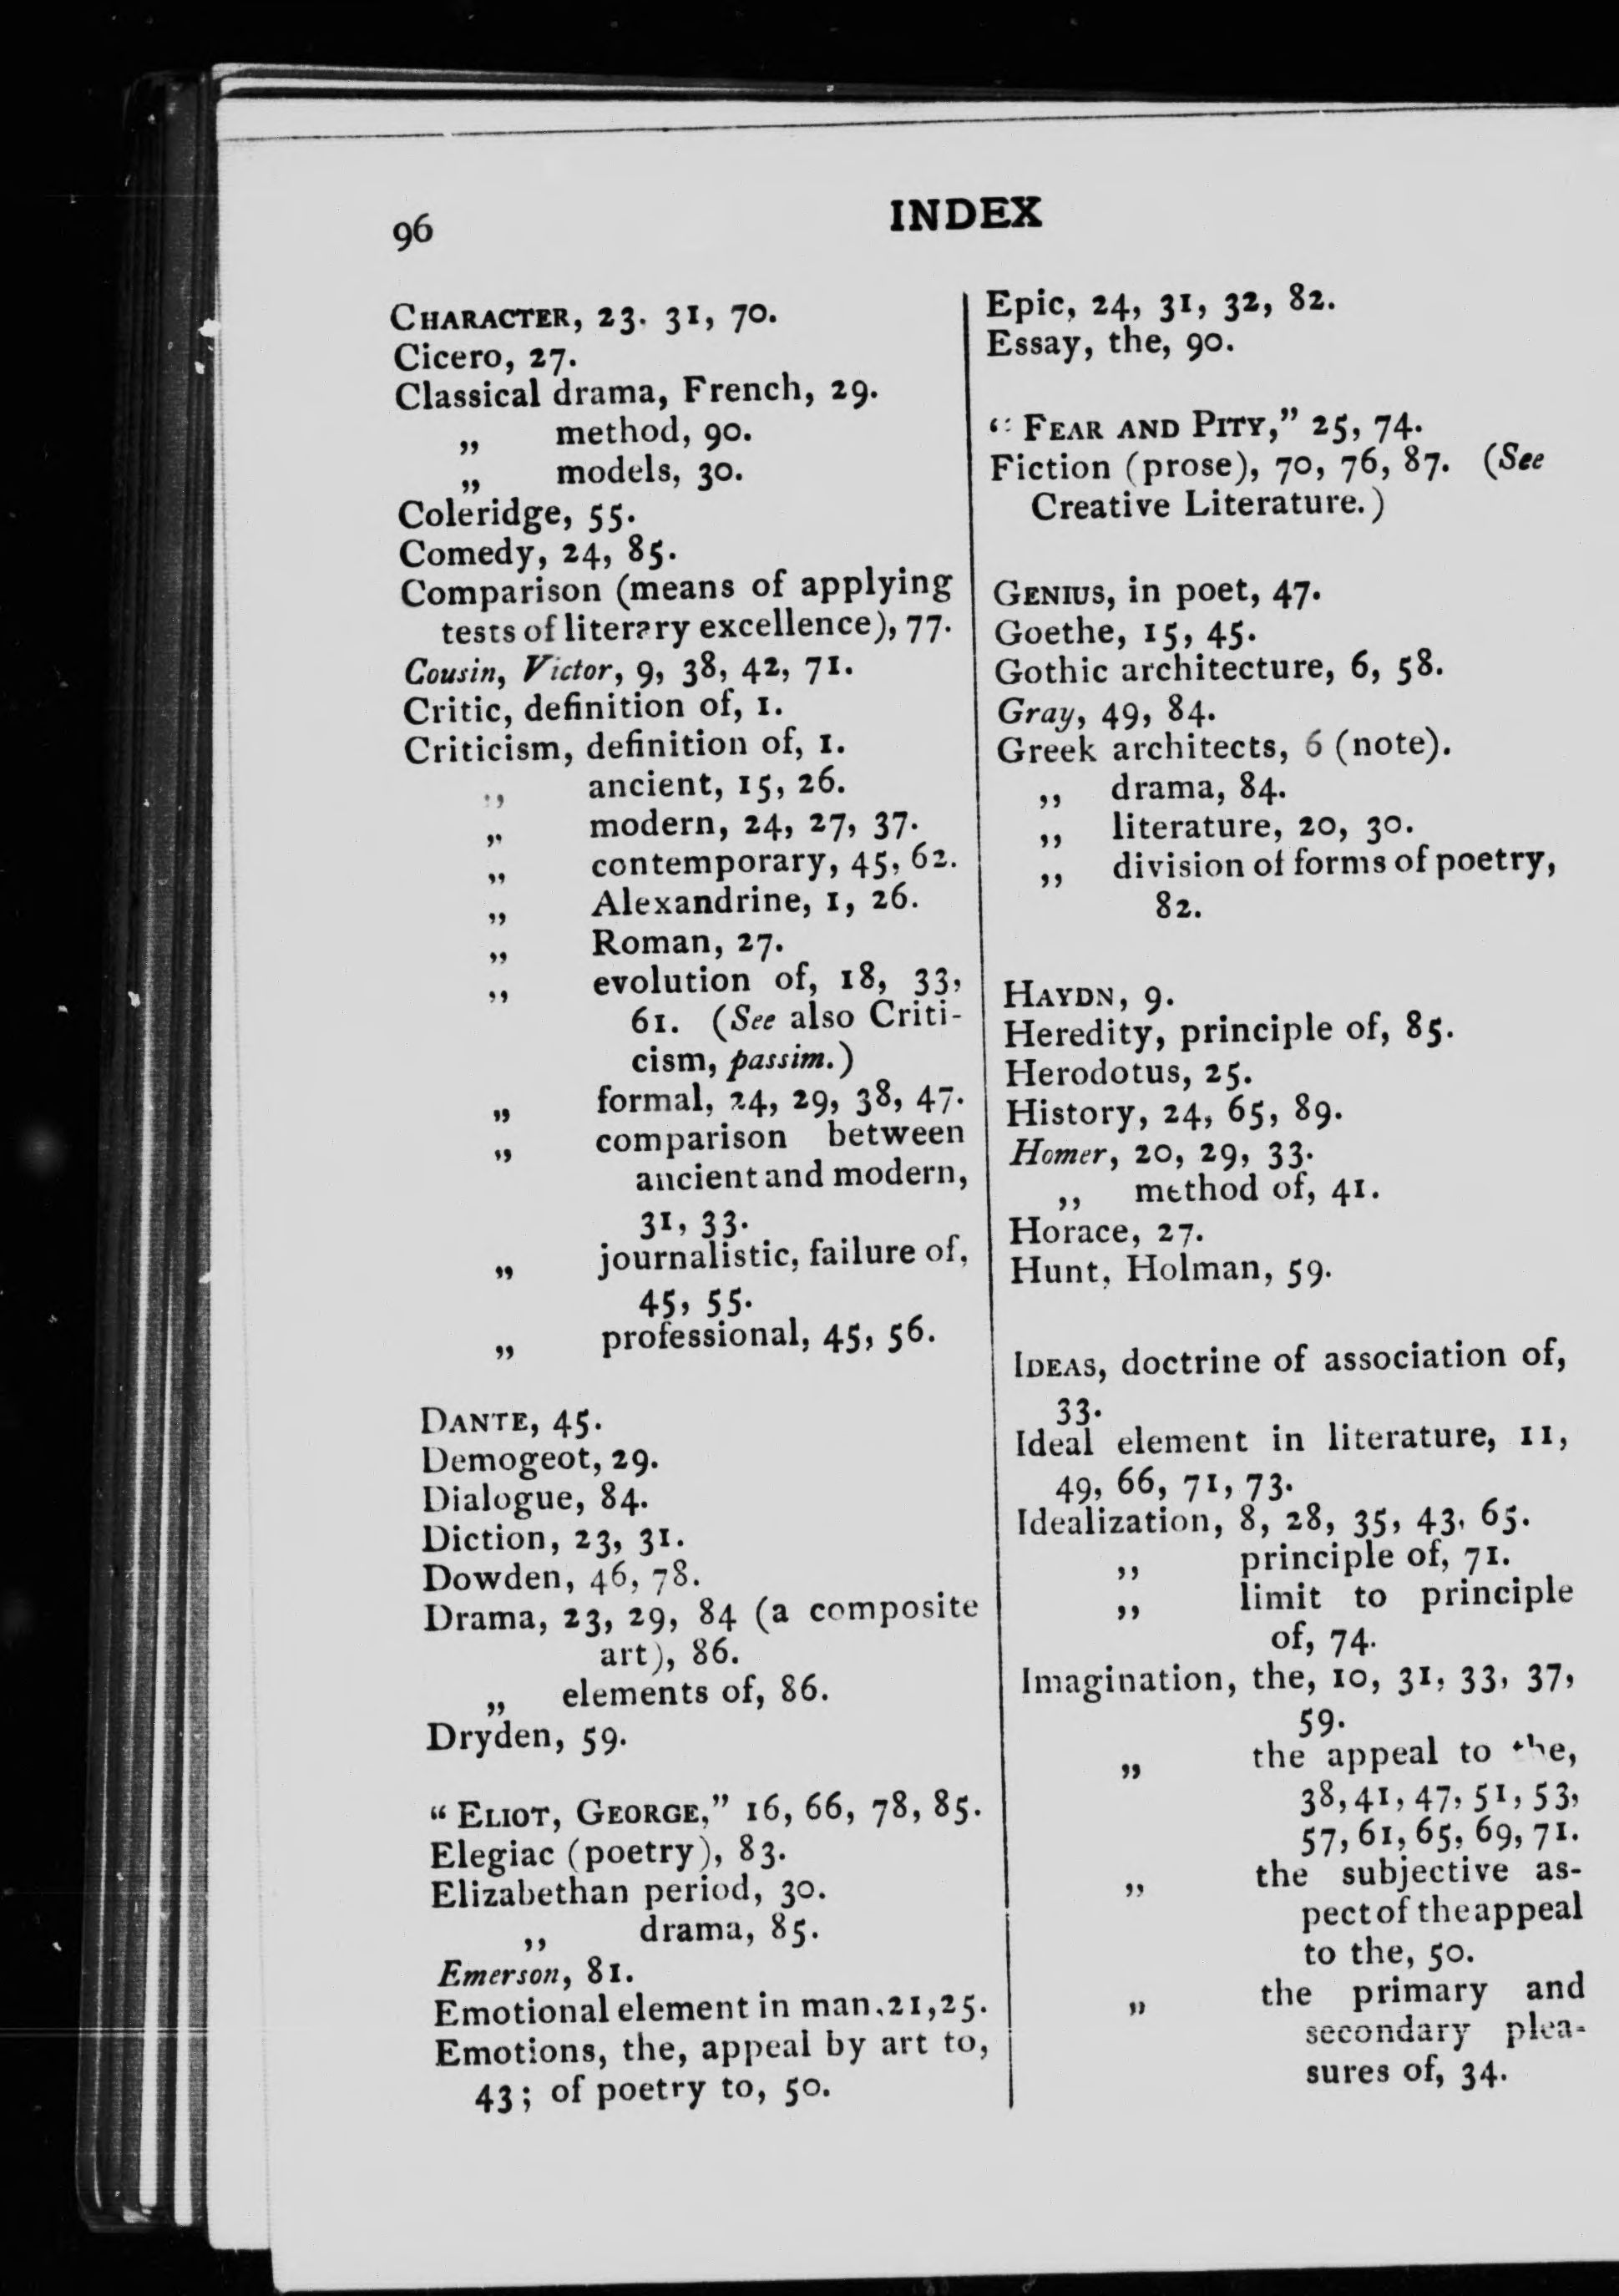 96
INDEX
CHARACTER, 23. 31, 70.
Cicero, 27.
Classical drama, French, 29.
„ method, 90.
„ models, 30.
Coleridge, 55.
Comedy, 24, 85.
Comparison (means of applying
tests of literary excellence), 77.
Cousin, Victor, 9, 38, 42, 71.
Critic, definition of, 1.
Criticism, definition of, 1.
„ ancient, 15, 26.
„ modern, 24, 27, 37.
„ contemporary, 45, 62.
„ Alexandrine, 1, 26.
„ Roman, 27.
„ evolution of, 18, 33,
61. (See also Criti-
cism, passim.)
„ formal, 24, 29, 38, 47.
„ comparison between
ancient and modern,
31, 33.
„ journalistic, failure of,
45, 55.
„ professional, 45, 56.
DANTE, 45.
Demogeot, 29.
Dialogue, 84.
Diction, 23, 31.
Dowden, 46, 78.
Drama, 23, 29, 84 (a composite
art), 86.
„ elements of, 86.
Dryden, 59.
“ ELIOT, GEORGE,” 16, 66, 78, 85.
Elegiac (poetry), 83.
Elizabethan period, 30.
„ drama, 85.
Emerson, 81.
Emotional element in man, 21, 25.
Emotions, the, appeal by art to,
43; of poetry to, 50.
Epic, 24, 31, 32, 82.
Essay, the, 90.
“ FEAR AND PITY,” 25, 74.
Fiction (prose), 70, 76, 87. (See
Creative Literature.)
GENIUS, in poet, 47.
Goethe, 15, 45.
Gothic architecture, 6, 58.
Gray, 49, 84.
Greek architects, 6 (note).
„ drama, 84.
„ literature, 20, 30.
„ division of forms of poetry,
82.
HAYDN, 9.
Heredity, principle of, 85.
Herodotus, 25.
History, 24, 65, 89.
Homer, 20, 29, 33.
„ method of, 41.
Horace, 27.
Hunt, Holman, 59.
IDEAS, doctrine of association of,
33.
Ideal element in literature, 11,
49, 66, 71, 73.
Idealization, 8, 28, 35, 43, 65.
„ principle of, 71.
„ limit to principle
of, 74.
Imagination, the, 10, 31, 33, 37,
59.
„ the appeal to the,
38, 41, 47, 51, 53,
57, 61, 65, 69, 71.
„ the subjective as-
pect of the appeal
to the, 50.
„ the primary and
secondary plea-
sures of, 34.